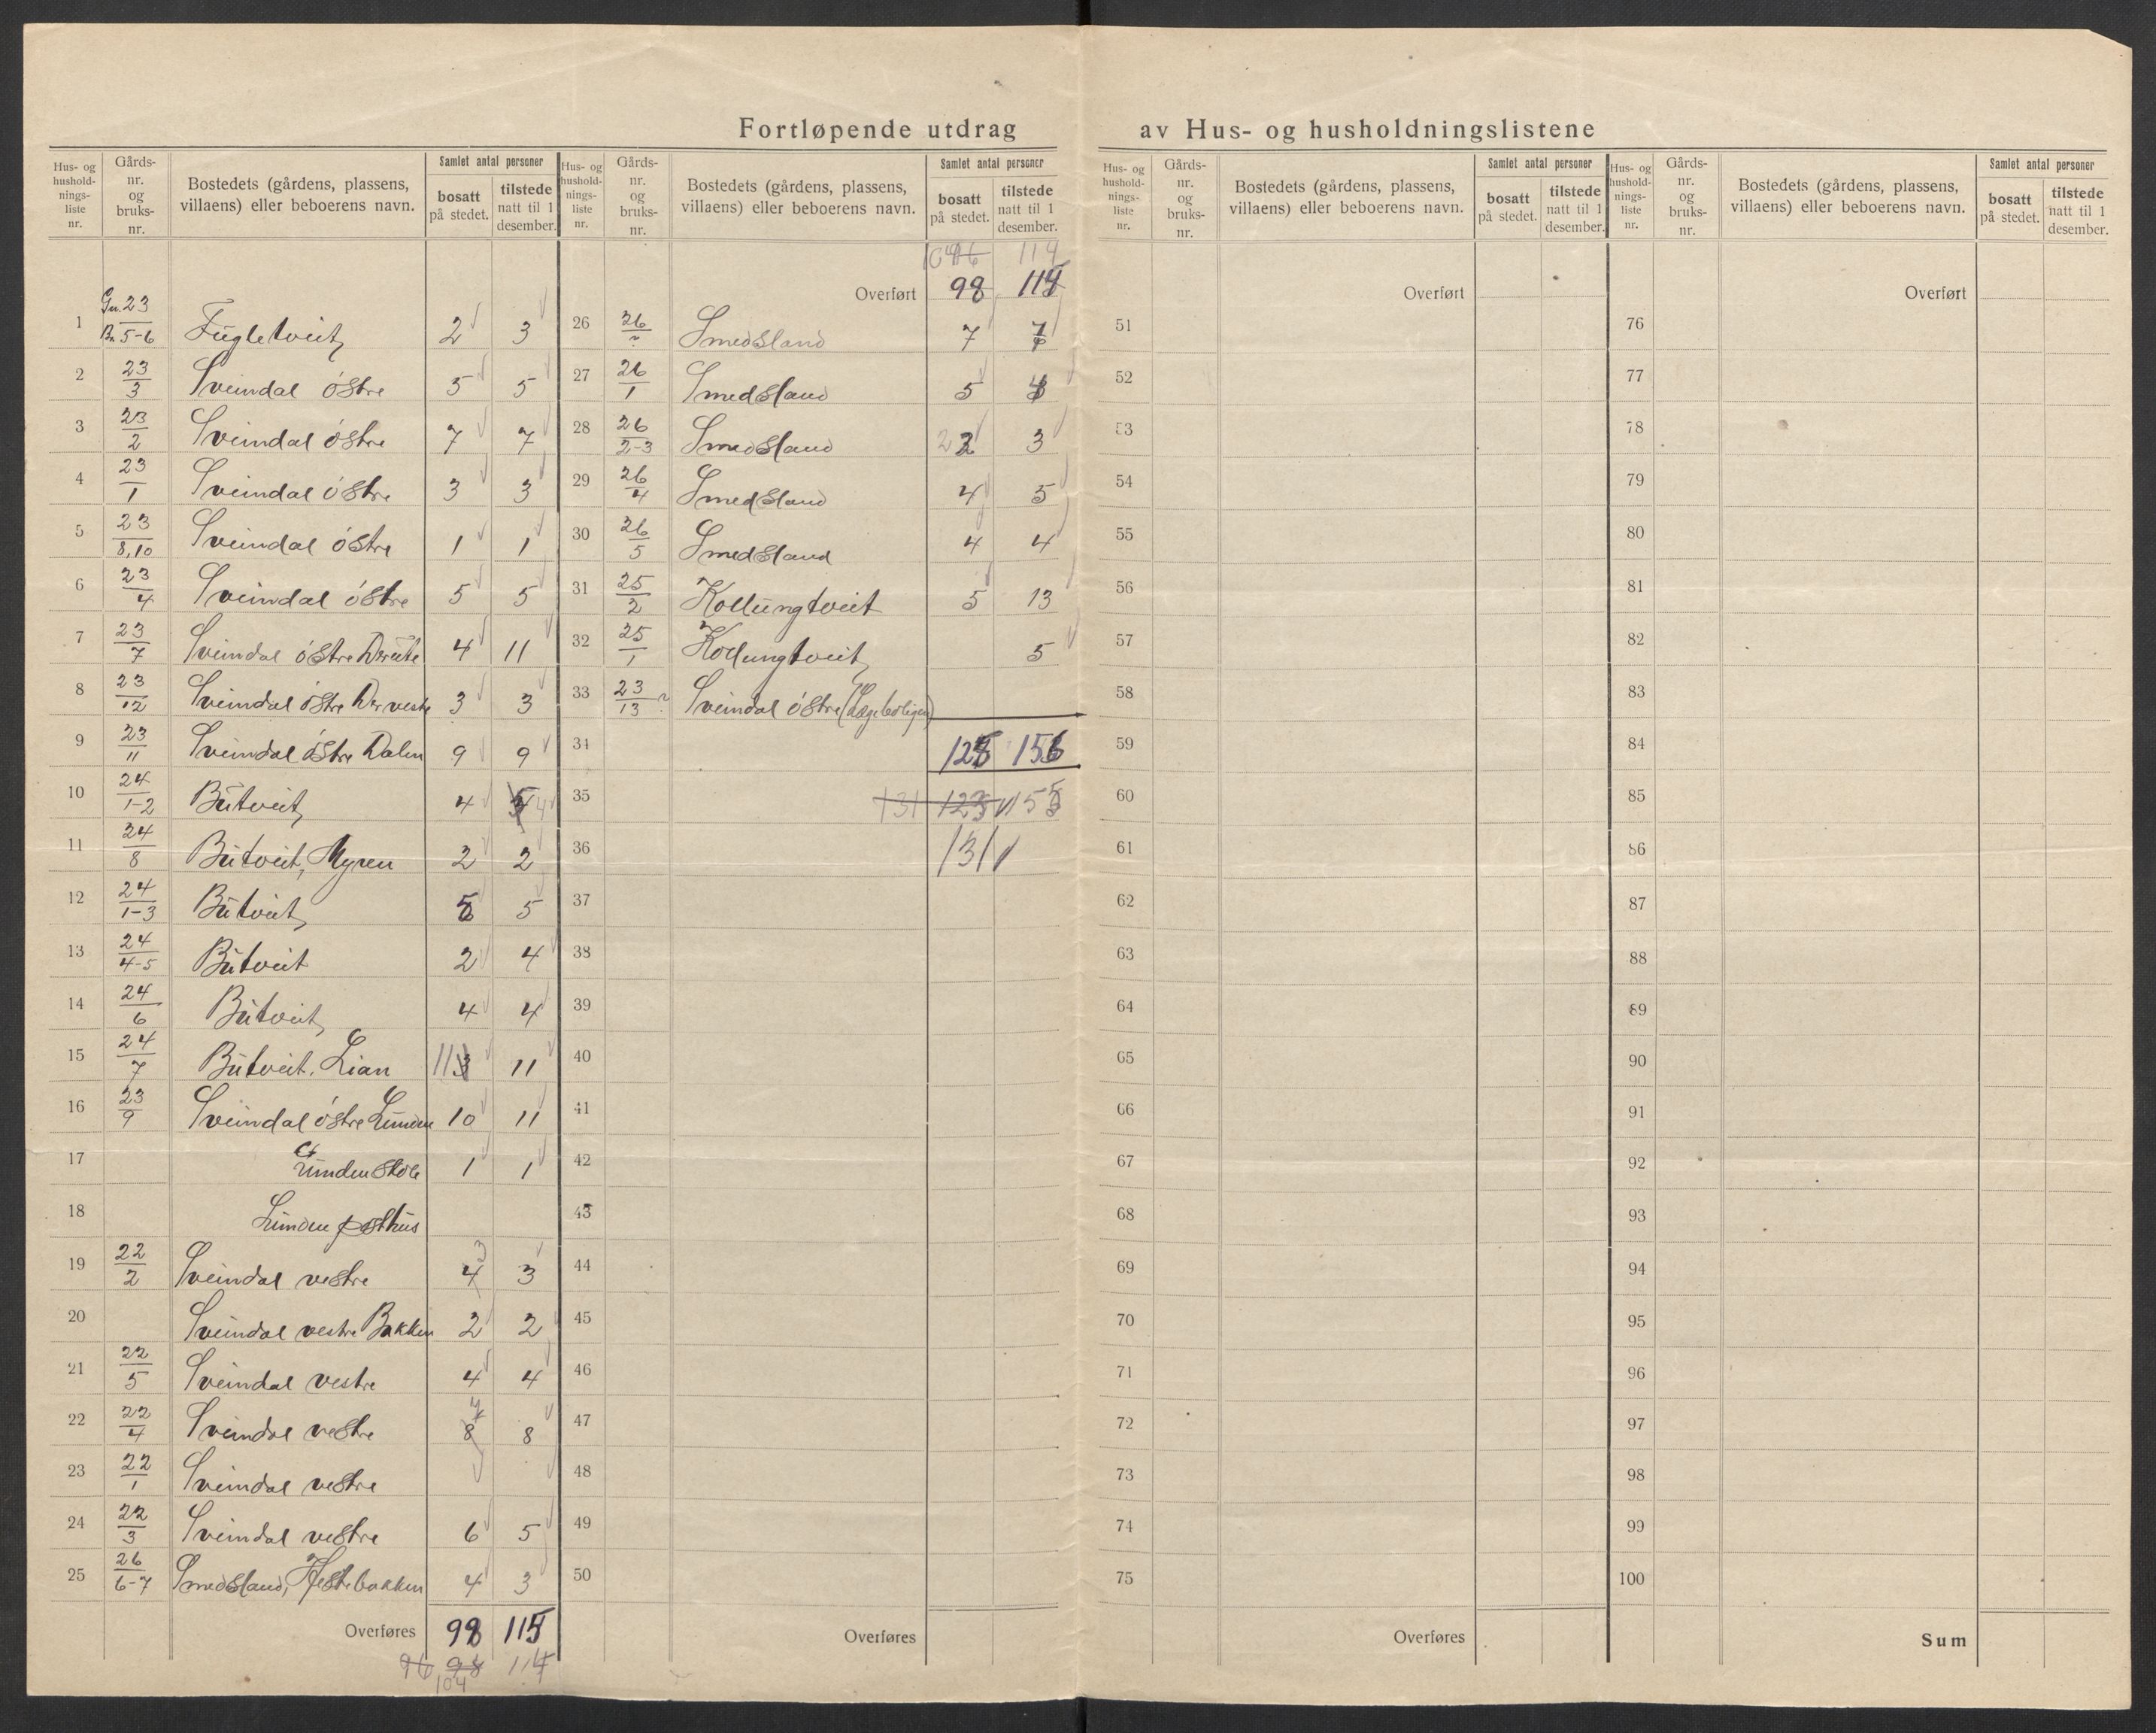 Fortløpende utdrag av Hus- og husholdningslistene
Hus- og husholdningsliste nr. | Gårds-nr. og bruks-nr. | Bostedets (gårdens, plassens, villaens) eller beboerens navn. | Samlet antal personer | bosatt på stedet. | tilstede natt til 1 desember.
1 | Gn. 23 Bn. 5-6 | Fugletveit, | 2 | 3
2 | 23/3 | Sveindal östre | 5 | 5
3 | 23/2 | Sveindal östre | 7 | 7
4 | 23/1 | Sveindal östre | 3 | 3
5 | 23/8,10 | Sveindal östre | 1 | 1
6 | 23/4 | Sveindal östre | 5 | 5
7 | 23/7 | Sveindal östre | 4 | 11
8 | 23/12 | Sveindal östre | 3 | 3
9 | 23/11 | Sveindal östre Dalen | 9 | 9
10 | 24/1-2 | Butveit, | 4 | 4
11 | 24/8 | Butveit, Myren | 2 | 2
12 | 24/1-3 | Butveit, | 5 | 5
13 | 24/4-5 | Butveit | 2 | 4
14 | 24/6 | Butveit, | 4 | 4
15 | 24/7 | Butveit. Lian | 11 | 11
16 | 23/9 | Sveindal östre Lunden | 10 | 11
17 | Lunden skole | 1 | 1
18 | Lunden posthus
19 | 22/2 | Sveindal vestre | 3 4 | 3
20 | Sveindal vestre Bakken | 2 | 2
21 | 22/5 | Sveindal vestre | 4 | 4
22 | 22/4 | Sveindal vestre | 8 | 8
23 | 22/1 | Sveindal vestre
24 | 22/3 | Sveindal vestre | 6 | 5
25 | 26/6-7 | Smedsland, Hestebakken | 4 | 3
Overføres | 98 | 115
96 98 114
104
Hus- og husholdningsliste nr. | Gårds-nr. og bruks-nr. | Bostedets (gårdens, plassens, villaens) eller beboerens navn. | Samlet antal personer | bosatt på stedet. | tilstede natt til 1 desember.
114
Overført | 98 | 114
26 | 26/? | Smedsland | 7 | 7
27 | 26/1 | Smedsland | 5 | 4
28 | 26/2-3 | Smedsland | 2 2 | 3
29 | 26/4 | Smedsland | 4 | 5
30 | 26/5 | Smedsland | 4 | 4
31 | 25/2 | Kollungtveit | 5 | 13
32 | 25/1 | Kollungtveit, | 5
33 | 23/13 ? | Sveindal östre (Lægeboligen)
34 | 128 | 156
35 | 131 | 125 | 155
36 | 131
37
38
39
40
41
42
43
44
45
46
47
48
49
50
Overføres
Hus- og husholdningsliste nr. | Gårds-nr. og bruks-nr. | Bostedets (gårdens, plassens, villaens) eller beboerens navn. | Samlet antal personer | bosatt på stedet. | tilstede natt til 1 desember.
Overført
51
52
53
54
55
56
57
58
59
60
61
62
63
64
65
66
67
68
69
70
71
72
73
74
75
Overføres
Hus- og husholdningsliste nr. | Gårds-nr. og bruks-nr. | Bostedets (gårdens, plassens, villaens) eller beboerens navn. | Samlet antal personer | bosatt på stedet. | tilstede natt til 1 desember.
Overført
76
77
78
79
80
81
82
83
84
85
86
87
88
89
90
91
92
93
94
95
96
97
98
99
100
Sum